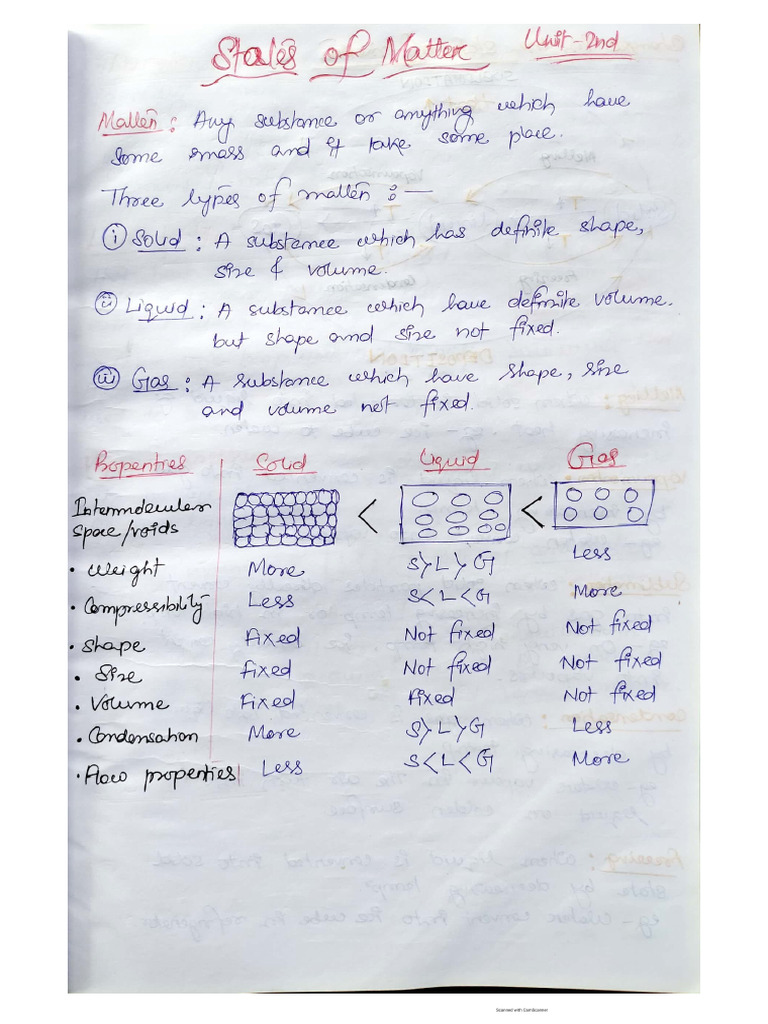 States of Matter Unit-2nd
Matter: Any substance or anything which have
some mass and it take some place.
Three types of matter :—
(i) Solid : A substance which has definite shape,
size & volume.
(ii) Liquid : A substance which have definite volume.
but shape and size not fixed.
(iii) Gas : A substance which have shape, size
and volume not fixed.
Properties Solid Liquid Gas
Intermolecular < <
space/voids
• Weight More S>L>G Less
• Compressibility Less S<L<G More
• Shape Fixed Not fixed Not fixed
• Size Fixed Not fixed Not fixed
• Volume Fixed Fixed Not fixed
• Condensation More S>L>G Less
• Flow properties Less S<L<G More
Scanned with CamScanner